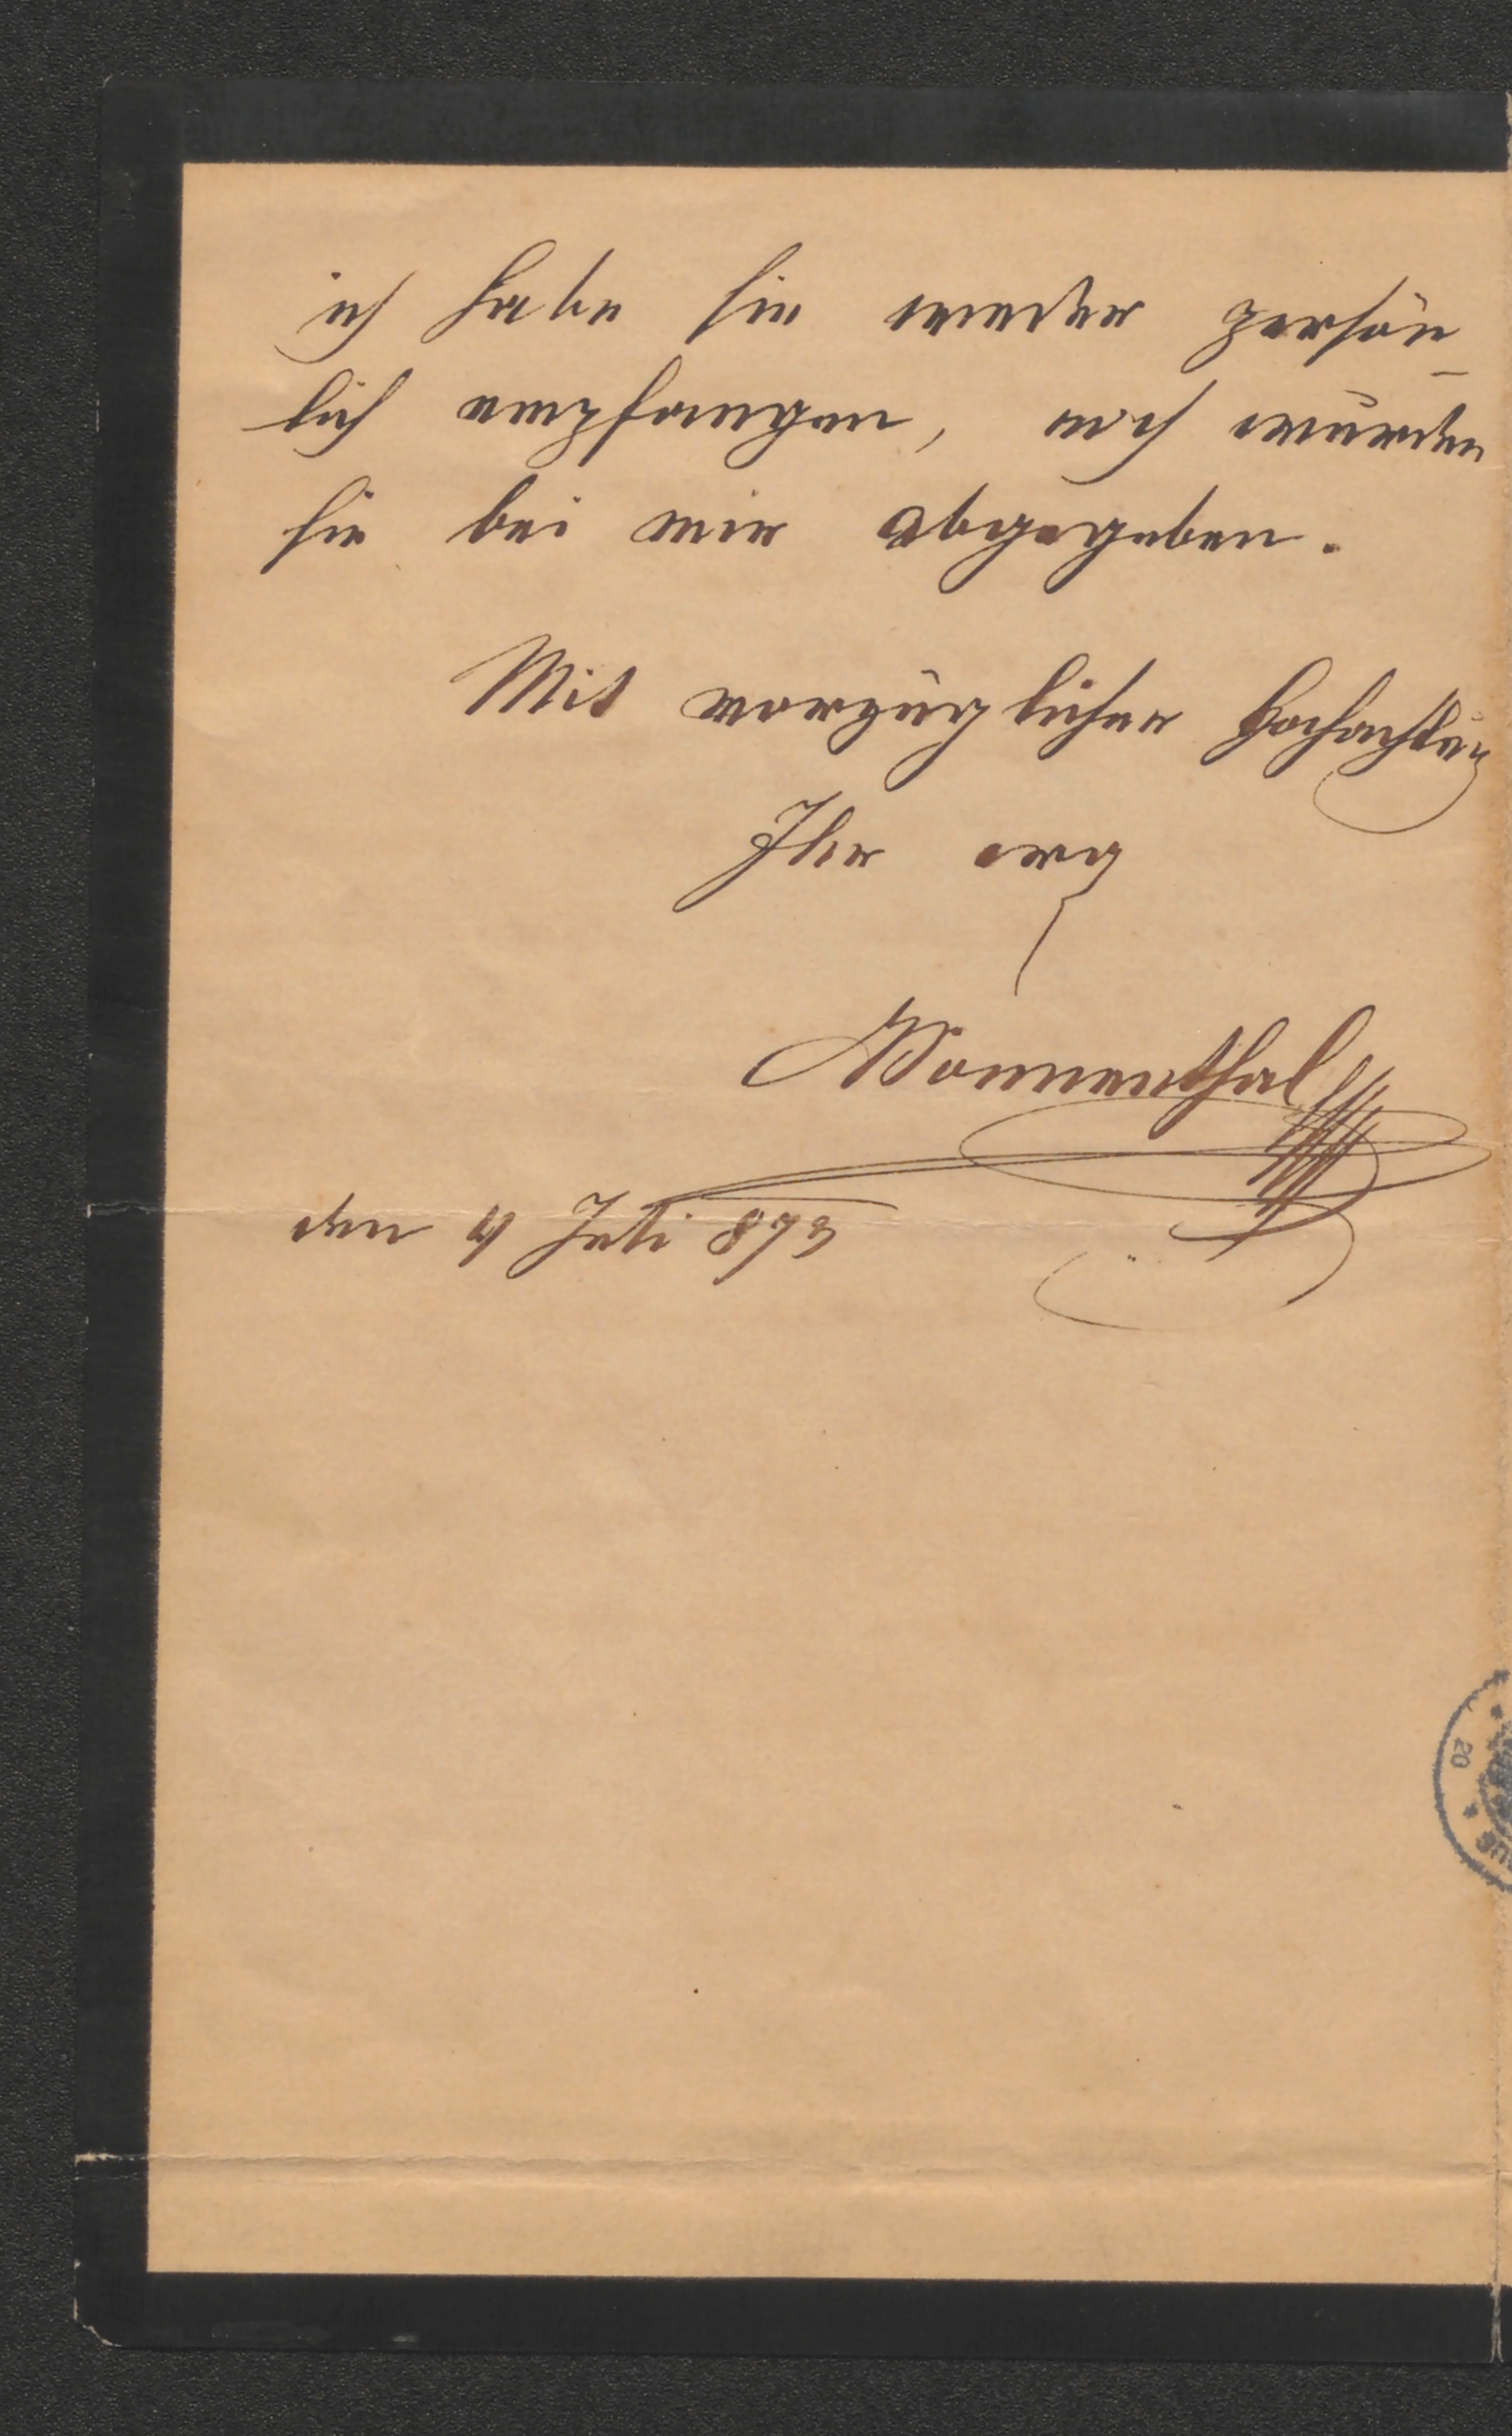 ich habe sie weder persön-
lich empfangen, noch wurden
sie bei mir abgegeben.
Mit vorzüglicher Hochachtung
Ihr erg
Sonnenthal
den 4 Juli 873
20